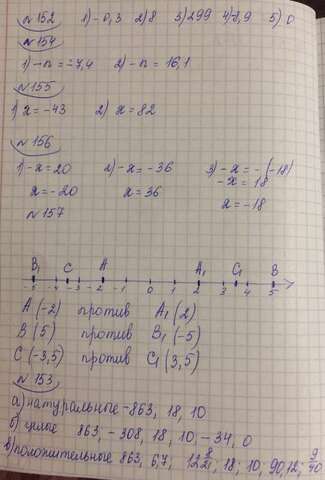 №152 1) -0,3 2) 8 3) 299 4) 8,9 5) 0
№154
1) -n = -7,4 2) -n = 16,1
№155
1) x = -43 2) x = 82
№156
1) -x = 20 2) -x = -36 3) -x = -(-18)
-x = 18
x = -20 x = 36 x = -18
№157
B₁ C A A₁ C₁ B
-5 -4 -3 -2 -1 0 1 2 3 4 5
A (-2) против A₁ (2)
B (5) против B₁ (-5)
C (-3,5) против C₁ (3,5)
№153
а) натуральные - 863, 18, 10
б) целые 863, -308, 18, 10, -34, 0
в) положительные 863, 6,7; 12 8/21; 18; 10; 90,12; 9/40